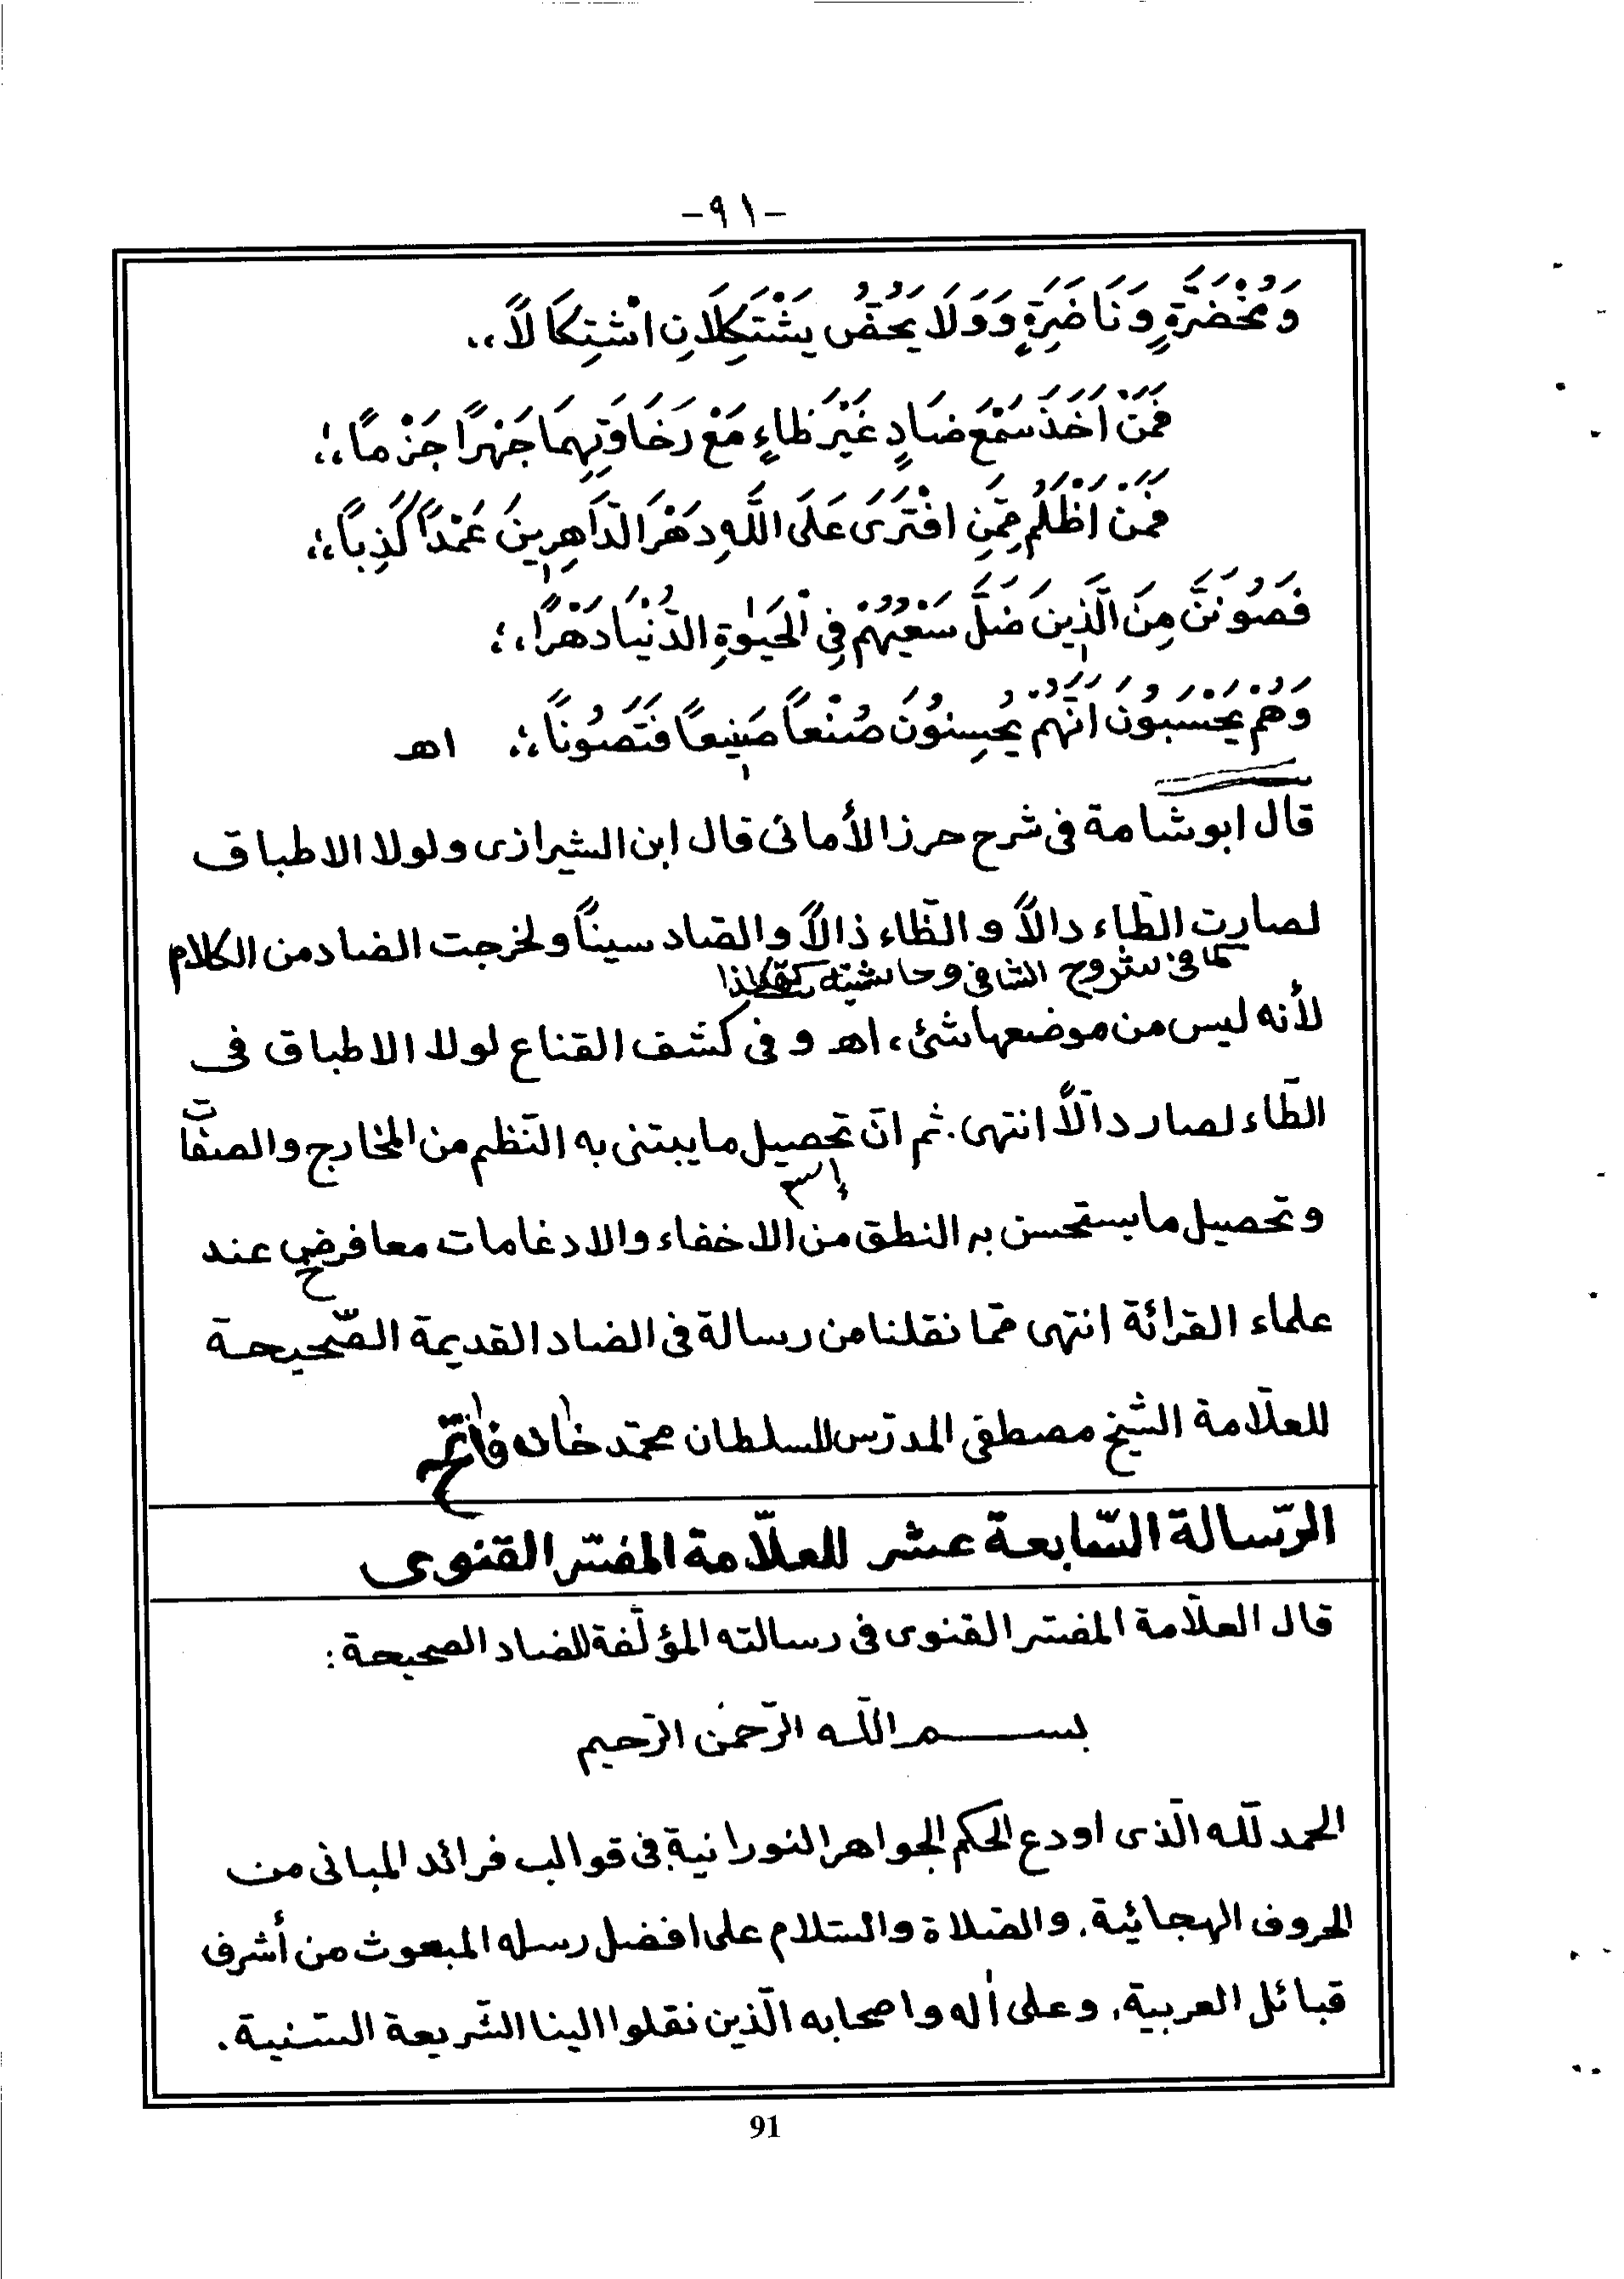 -٩١-
وَمُخْضَرَّةٍ وَنَاضِرَةٍ وَوَلَا يَحُضُّ يَشْتَكِلَانِ اشْتِكَالًا،،
فَمَنْ اَخَذَ سَمْعَ ضَادٍ غَيْرَ ظَاءٍ مَعْ رَخَاوَتِهِمَا جَهْرًا جَزْمًا،؛
فَمَنْ اَظْلَمُ مِمَّنِ افْتَرَى عَلَى اللَّهِ دَهْرَ الدَّاهِرِينَ عَمْدًا كَذِبًا،؛
فَصُونَنَّ مِنَ الَّذِينَ ضَلَّ سَعْيُهُمْ فِي الْحَيٰوةِ الدُّنْيَا دَهْرًا،؛
وَهُمْ يَحْسَبُونَ اَنَّهُمْ يُحْسِنُونَ صُنْعًا صَنِيعًا فَتَصُونًا،؛ اهـ
قال ابو شامة فى شرح حرز الأمانى قال ابن الشيرازى ولولا الاطباق
لصارت الطّاء دالاً و الظّاء ذالاً والصّاد سيناً ولخرجت الضاد من الكلام
كما فى شروح الشافى وحاشيته هكذا
لأنه ليس من موضعها شئ، اهـ و فى كشف القناع لولا الاطباق فى
الطّاء لصار دالاً انتهى. ثم انّ تحصيل ما يبتنى به النّظم من المخارج والصفات
وتحصيل ما يستحسن به النطق من الاخفاء والادغامات معا فرض عند
علماء القرائة انتهى ممّا نقلنا من رسالة فى الضاد القديمة الصّحيحة
للعلّامة الشّيخ مصطفى المدرّس للسلطان محمّد خان فاتح
الرّسالة السّابعة عشر للعلّامة المفسّر القنوى
قال العلّامة المفسّر القنوى فى رسالته المؤلّفة للضاد الصحيحة:
بسم اللّه الرّحمٰن الرّحيم
الحمد للّه الّذى اودع الحكم الجواهر النورانية فى قوالب فرائد المبانى من
الحروف الهجائية. والصّلاة والسّلام على افضل رسله المبعوث من أشرف
قبائل العربية. وعلى اٰله واصحابه الّذين نقلوا الينا الشّريعة السّنية.
91